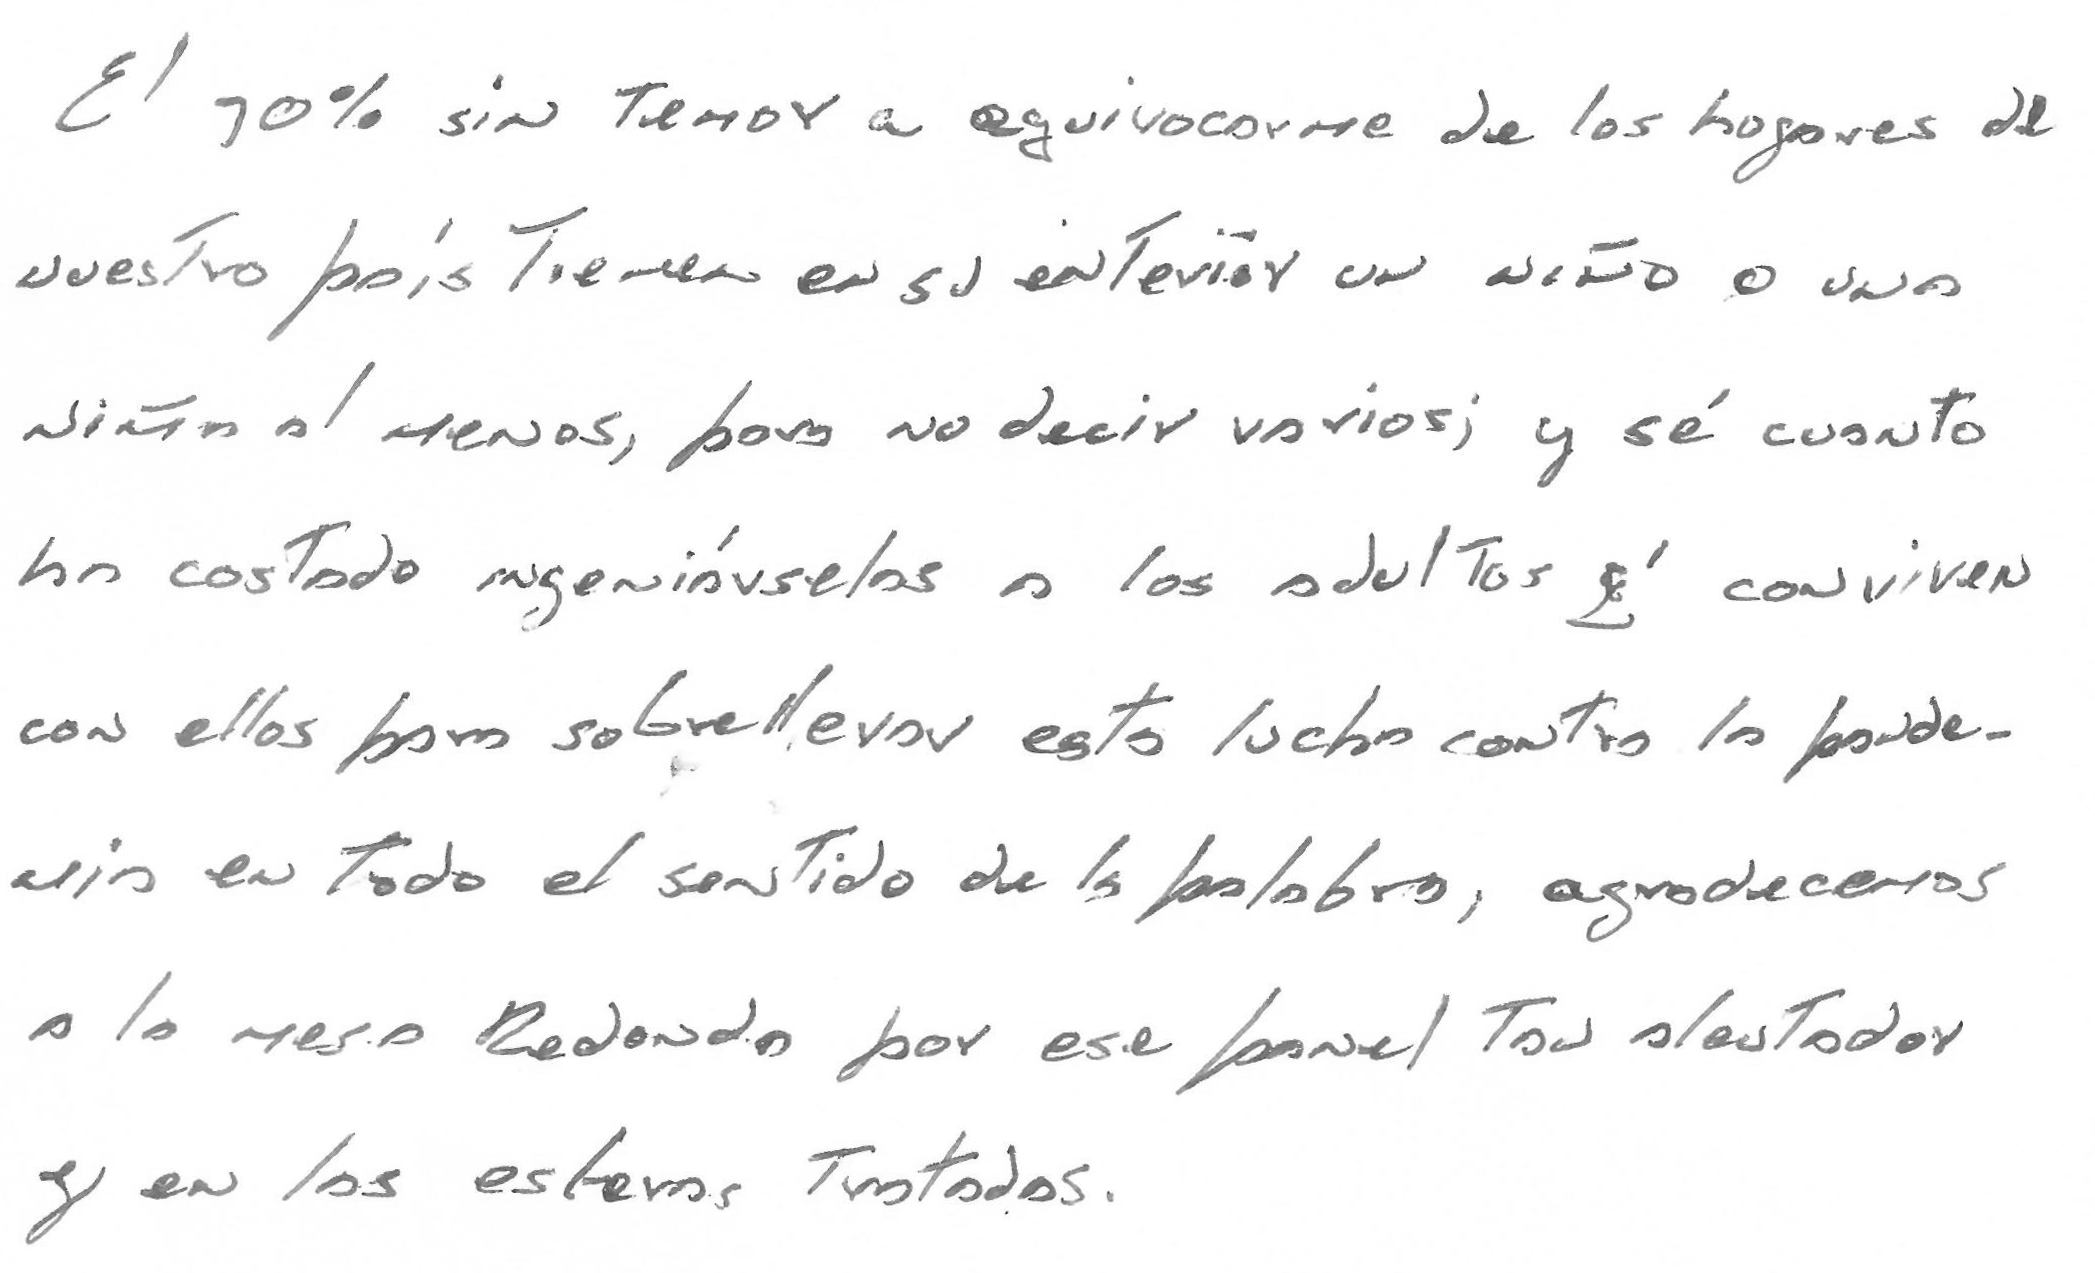 El 70% sin temor a equivocarme de los hogares de
nuestro país tienen en su interior un niño o una
niña al menos, para no decir varios; y sé cuanto
ha costado ingeniárselas a los adultos q' conviven
con ellos para sobrellevar esta lucha contra la pande-
mia en todo el sentido de la palabra, agradecemos
a la mesa Redonda por ese panel tan alentador
y en las esferas tratadas.